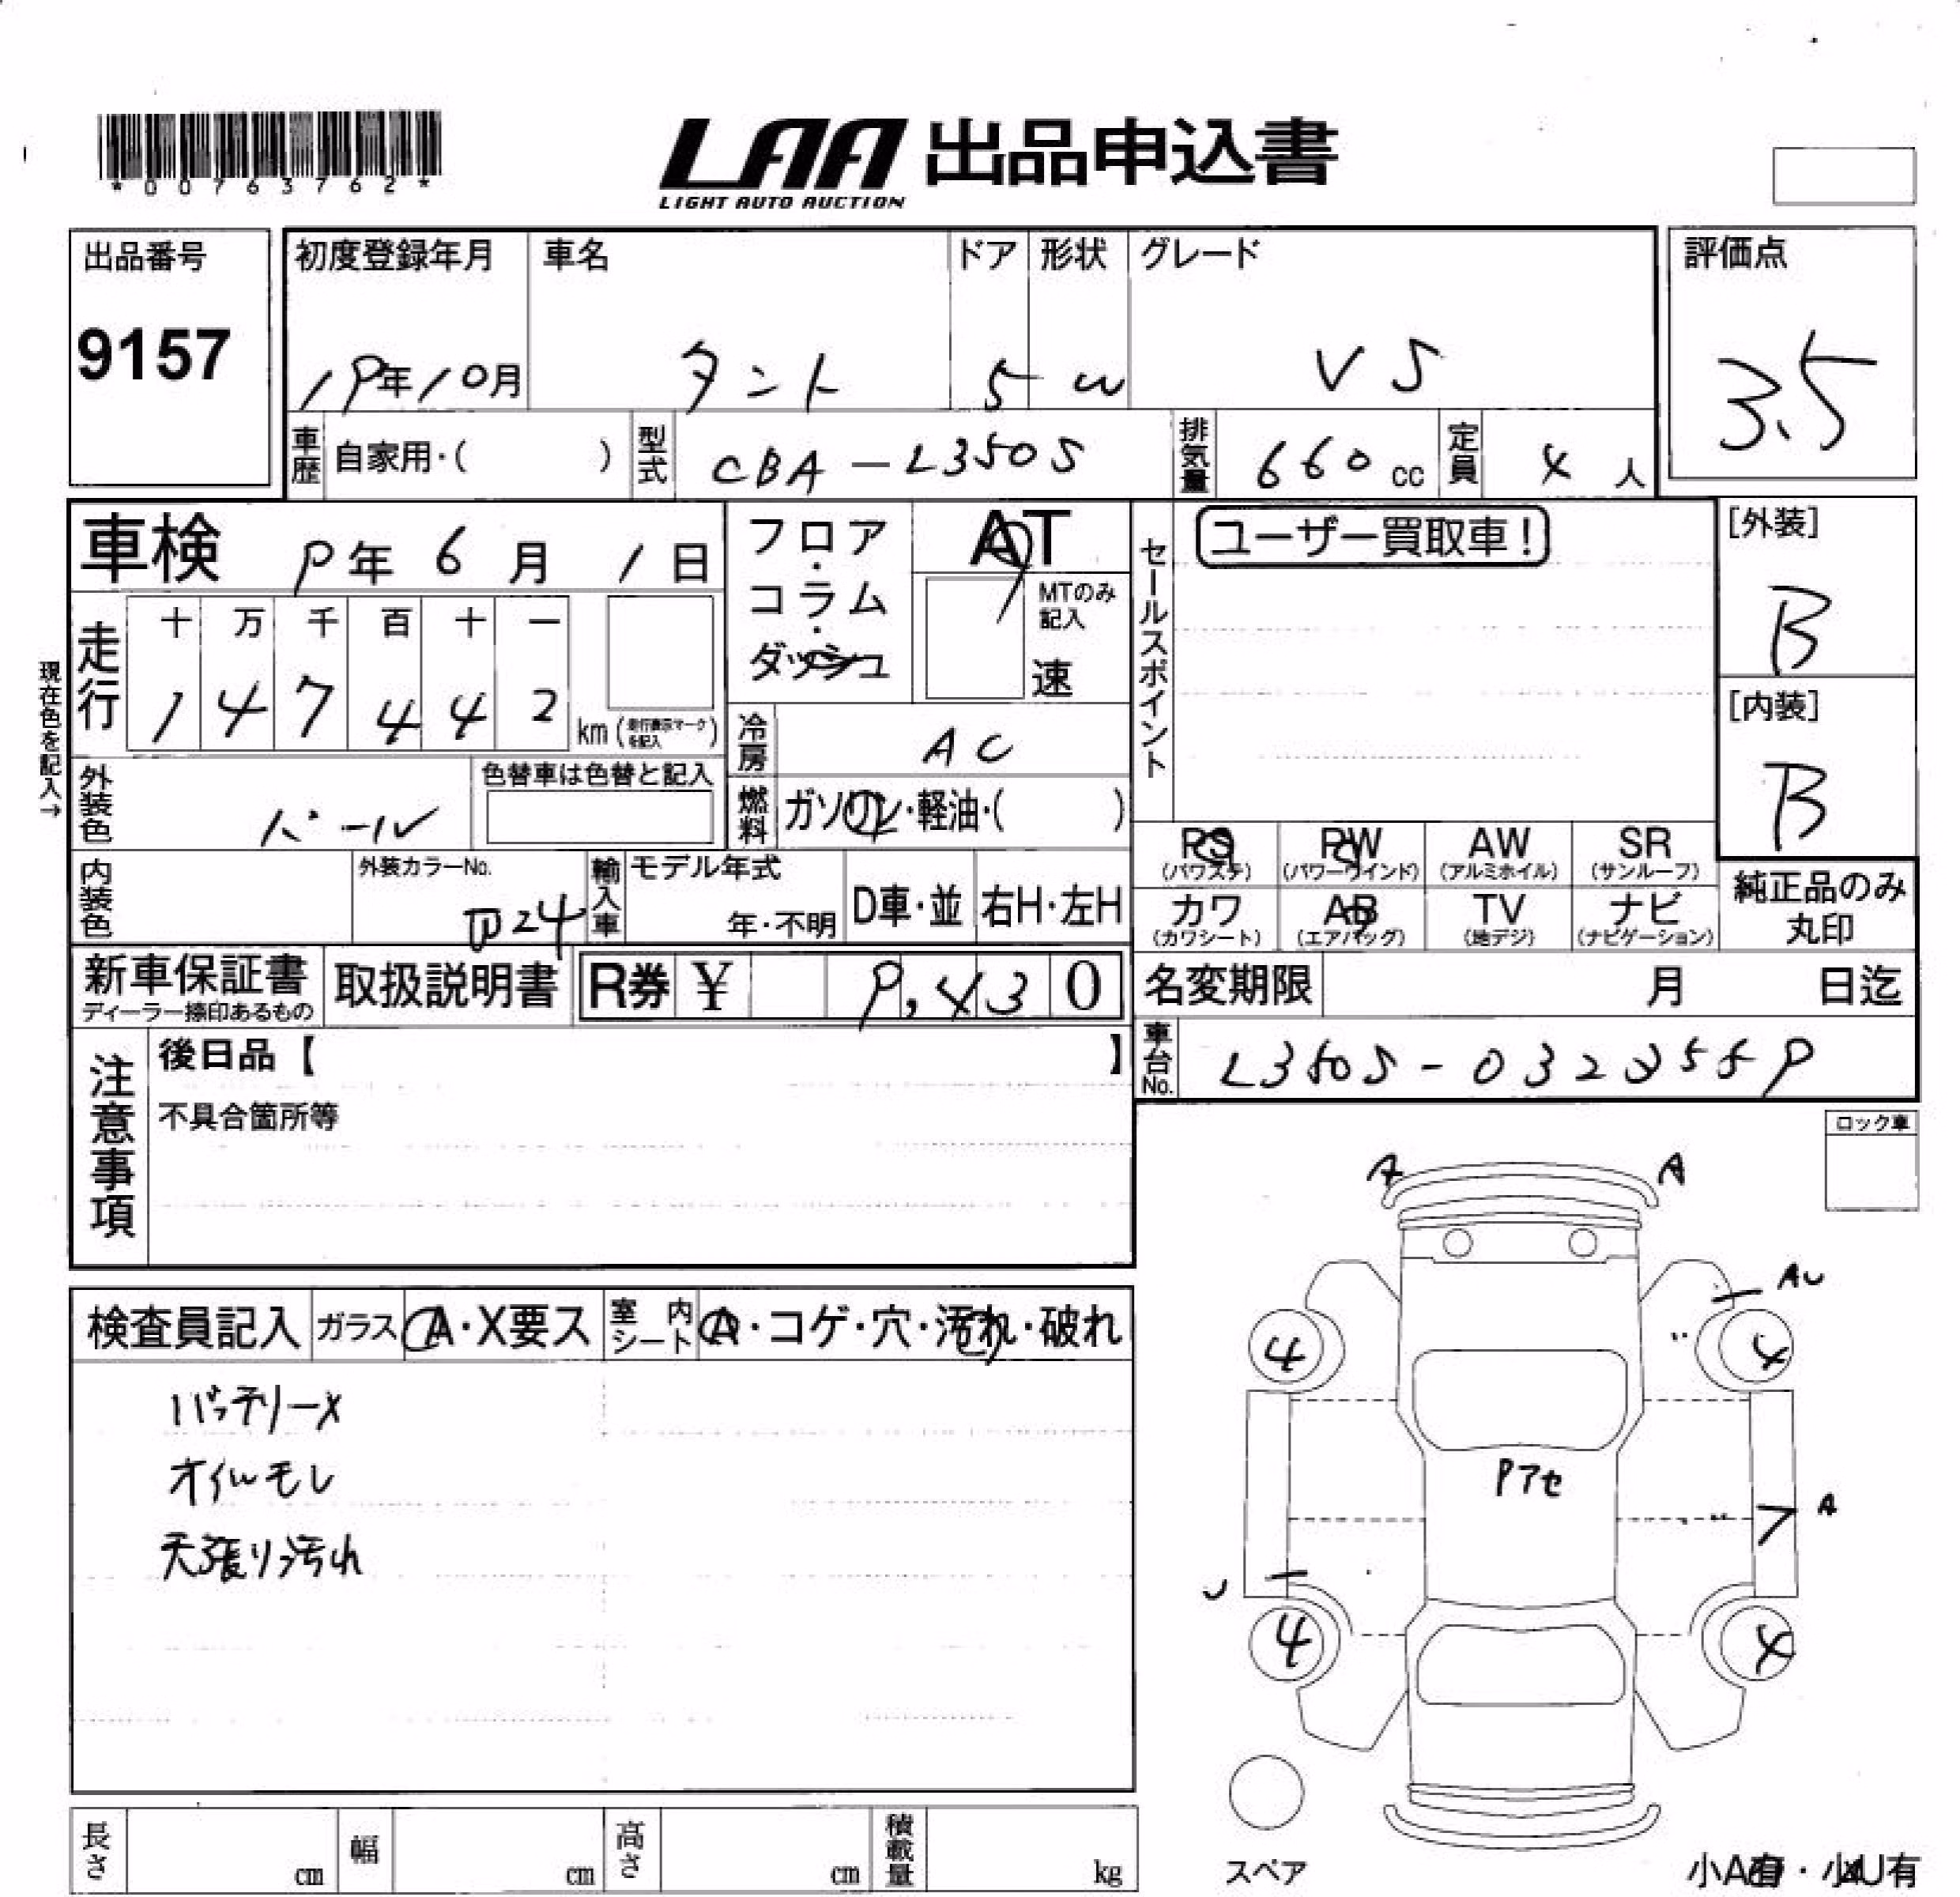 *00763762*
LAA 出品申込書
LIGHT AUTO AUCTION
出品番号
9157
初度登録年月
19年10月
車名
タント
ドア
5
形状
W
グレード
VS
評価点
3.5
車歴 自家用・( )
型式 CBA-L350S
排気量 660 cc
定員 4 人
車検 9年 6月 1日
フロア・コラム・ダッシュ
AT
MTのみ記入
速
セールスポイント
ユーザー買取車!
[外装]
B
[内装]
B
現在色を記入→
走行
十 万 千 百 十 一
1 4 7 4 4 2
km (走行表示マークを記入)
冷房 AC
燃料 ガソリン・軽油・( )
外装色 パール
色替車は色替と記入
内装色
外装カラーNo.
W24
輸入車
モデル年式
年・不明
D車・並
右H・左H
PS (パワステ)
PW (パワーウインド)
AW (アルミホイル)
SR (サンルーフ)
カワ (カワシート)
AB (エアバッグ)
TV (地デジ)
ナビ (ナビゲーション)
純正品のみ丸印
新車保証書
ディーラー捺印あるもの
取扱説明書
R券 ¥ 9,430
名変期限 月 日迄
車台No.
注意事項
後日品【 】
不具合箇所等
ロック車
A A
AU
4 4
Pアセ
A
U
4 4
検査員記入
ガラス A・X要ス
室内シート A・コゲ・穴・汚れ・破れ
バッテリーX
オイルモレ
天張り汚れ
長さ cm
幅 cm
高さ cm
積載量 kg
スペア
小A有・小U有